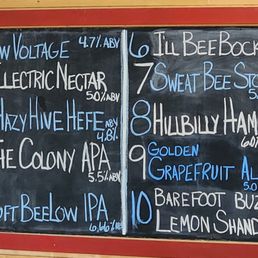 W VOLTAGE 4.7% ABV
LECTRIC NECTAR
5.0% ABV
HAZY HIVE HEFE ABV
4.8%
THE COLONY APA
5.5% ABV
OFT BEELOW IPA
6.66%
6 ILL BEEBOCK
7 SWEAT BEE STO
5.
8 HILLBILLY HAM
6.0
9 GOLDEN
GRAPEFRUIT AL
5.
10 BAREFOOT BUZ
LEMON SHAND